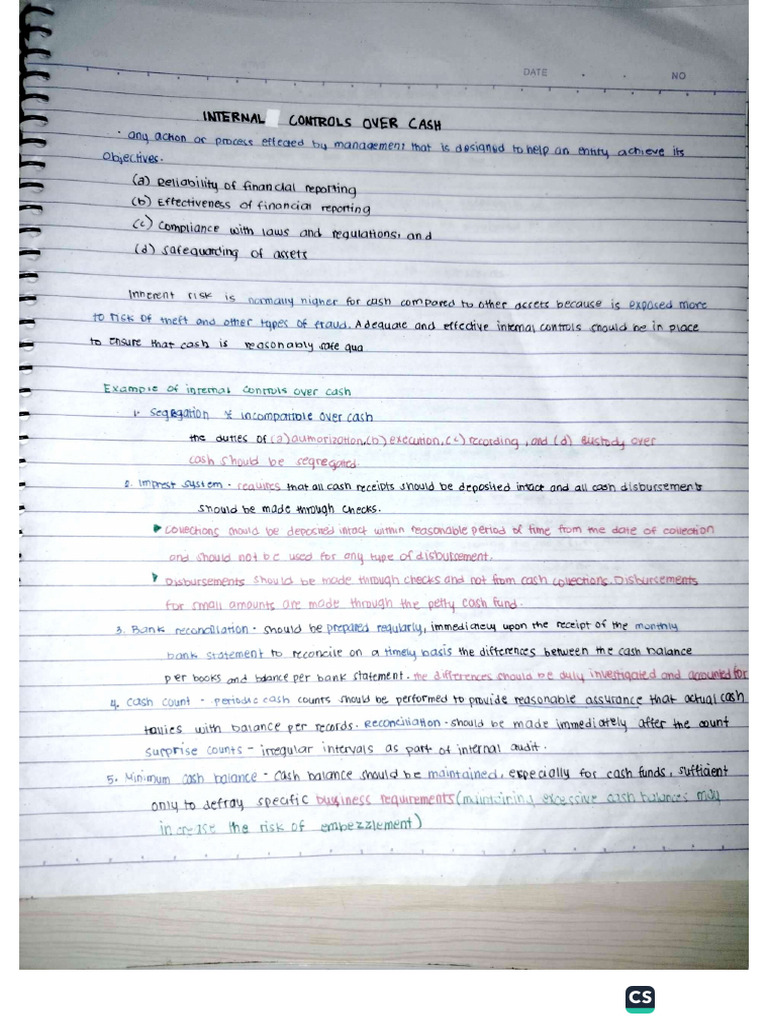 DATE
NO
INTERNAL CONTROLS OVER CASH
• any action or process effected by management that is designed to help an entity achieve its
Objectives.
(a) Reliability of financial reporting
(b) Effectiveness of financial reporting
(c) Compliance with laws and regulations, and
(d) safeguarding of assets
Inherent risk is normally higher for cash compared to other assets because is exposed more
to risk of theft and other types of fraud. Adequate and effective internal controls should be in place
to ensure that cash is reasonably safe gua
Example of internal controls over cash
1. Segregation of incompatible over cash
the duties of (a) authorization, (b) execution, (c) recording, and (d) custody over
cash should be segregated.
2. Imprest system - requires that all cash receipts should be deposited intact and all cash disbursements
should be made through checks.
▶ Collections should be deposited intact within reasonable period of time from the date of collection
and should not be used for any type of disbursement.
▶ Disbursements should be made through checks and not from cash collections. Disbursements
for small amounts are made through the petty cash fund.
3. Bank reconciliation - should be prepared regularly, immediately upon the receipt of the monthly
bank statement to reconcile on a timely basis the differences between the cash balance
per books and balance per bank statement. the differences should be duly investigated and accounted for
4. Cash count - periodic cash counts should be performed to provide reasonable assurance that actual cash
tallies with balance per records. Reconciliation - should be made immediately after the count
surprise counts - irregular intervals as part of internal audit.
5. Minimum cash balance - Cash balance should be maintained, especially for cash funds, sufficient
only to defray specific business requirements (maintaining excessive cash balances may
increase the risk of embezzlement)
CS